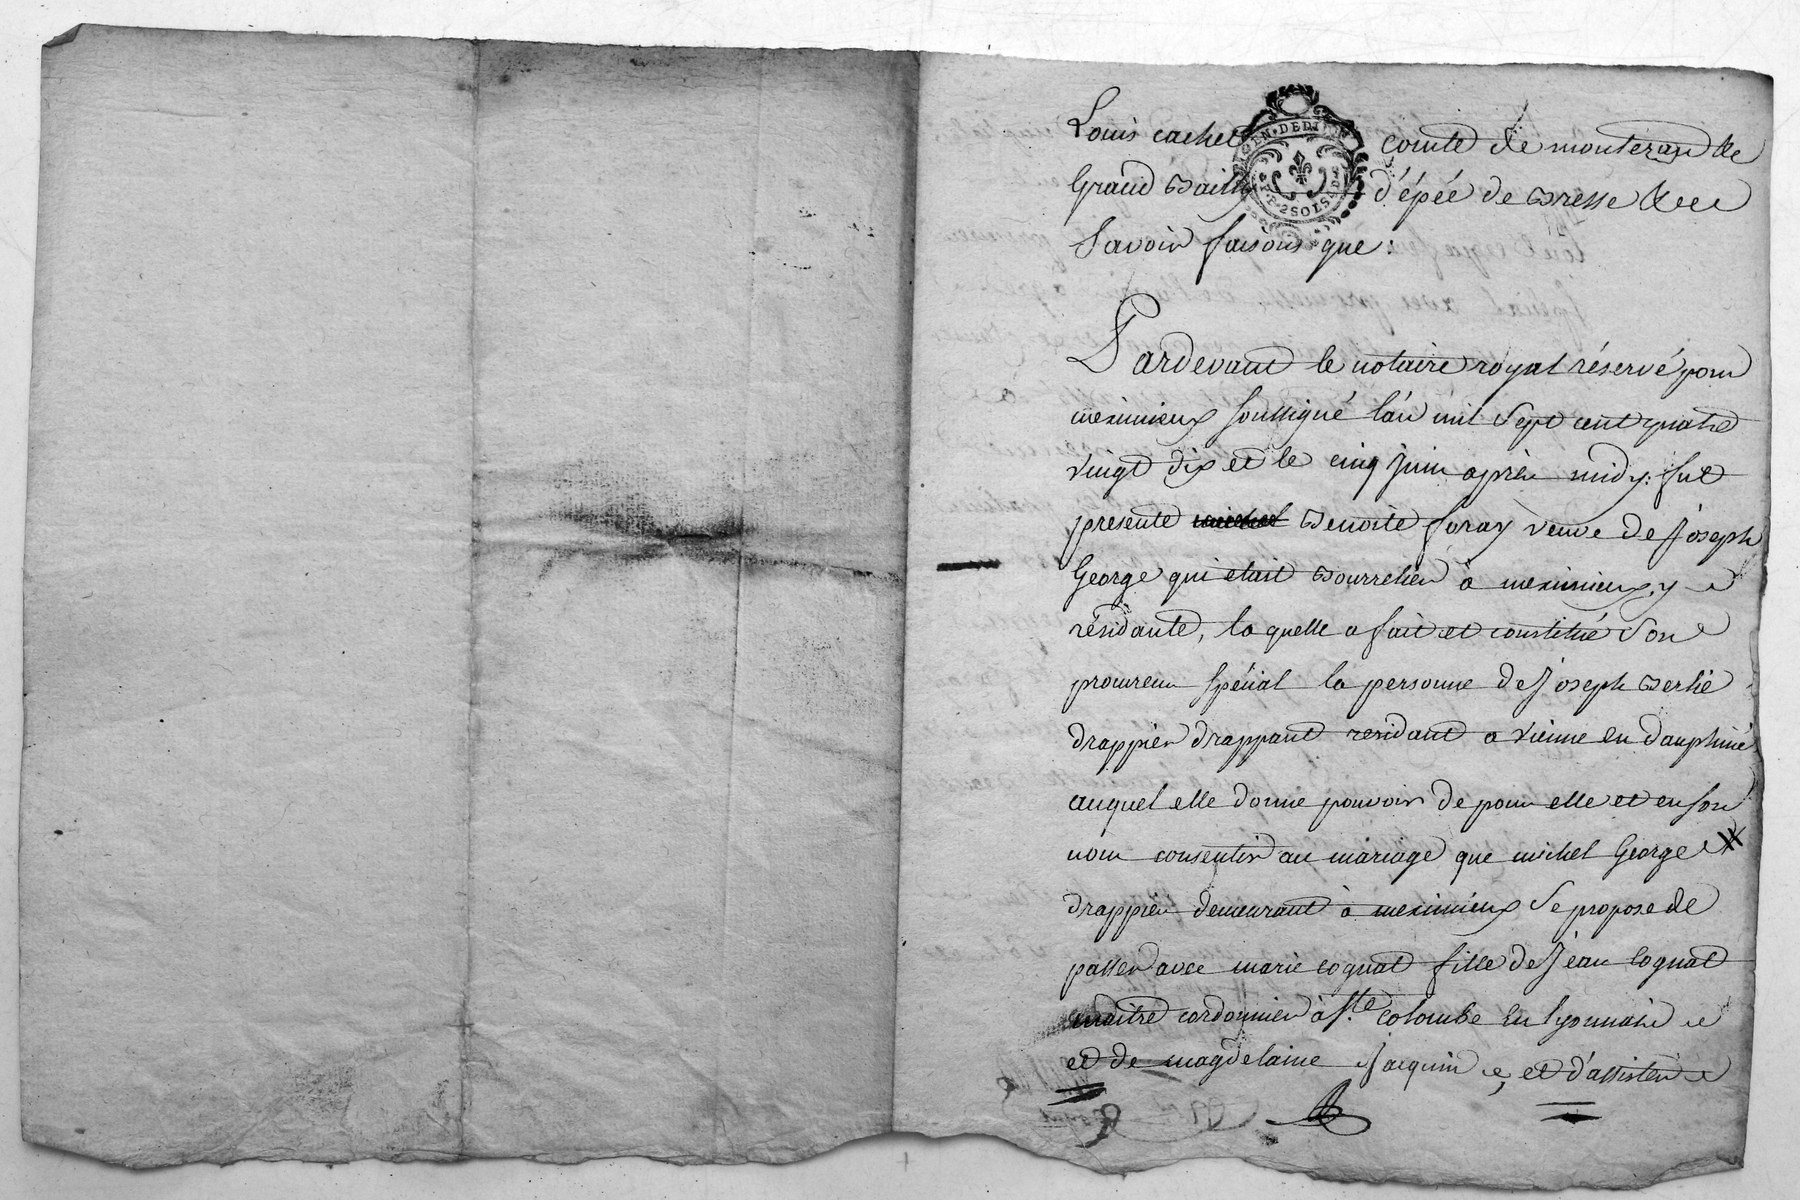 Louis cachet comte de montéran &c
GEN · DE DIJON
2 SOLS
Grand Bailly d'épée de Bresse &c
Savoir faisons que :
Pardevant le notaire royal réservé pour
meximieux soussigné l'an mil sept cent quatre
vingt dix et le cinq juin après midy : fut
presente michel Benoite foray veuve de Joseph
George qui était Bourrelier à meximieux, y
résidante, la quelle a fait et constitué son
procureur spécial la personne de Joseph Berlié
drappier drappant residant a vienne en dauphiné
auquel elle donne pouvoir de pour elle et en son
nom consentir au mariage que michel George
drappier demeurant à meximieux se propose de
passer avec marie cognat fille de Jean cognat
maitre cordonnier à Ste colombe en lyonnais
et de magdelaine Jacquin, et d'assister